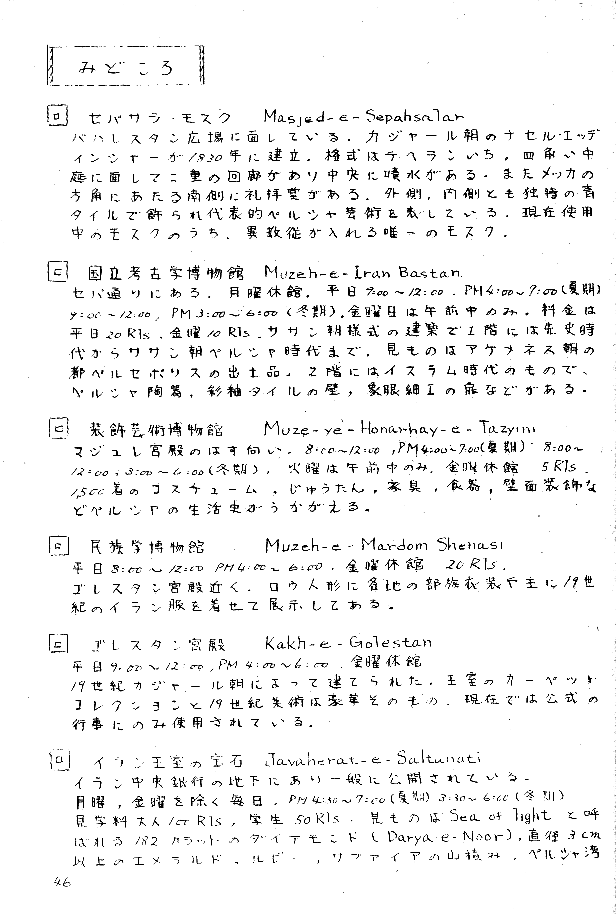 みどころ
セパサラ・モスク Masjed-e-Sepahsalar
バハレスタン広場に面している。カジャール朝のナセル・エッデ
インシャーが1830年に建立。格式はテヘランいち。四角い中
庭に面して二重の回廊があり中央に噴水がある。またメッカの
方角にあたる南側に礼拝堂がある。外側、内側とも独特の青
タイルで飾られ代表的ペルシャ芸術を表している。現在使用
中のモスクのうち、異教徒が入れる唯一のモスク。
国立考古学博物館 Muzeh-e-Iran Bastan
セパ通りにある。月曜休館。平日9:00~12:00 PM4:00~7:00(夏期)
9:00~12:00, PM3:00~6:00(冬期)。金曜日は午前中のみ。料金は
平日20Rls、金曜10Rls。ササン朝様式の建築で1階には先史時
代からササン朝ペルシャ時代まで。見ものはアケメネス朝の
都ペルセポリスの出土品。2階にはイスラム時代のもので、
ペルシャ陶器、彩釉タイルの壁、象眼細工の扉などがある。
装飾芸術博物館 Muze-ye-Honarhay-e-Tazyini
マジュレ宮殿のはす向い。8:00~12:00, PM4:00~7:00(夏期) 8:00~
12:00, 3:00~6:00(冬期)。火曜は午前中のみ。金曜休館 5Rls.
1,500着のコスチューム、じゅうたん、家具、食器、壁面装飾な
どペルシャの生活史がうかがえる。
民族学博物館 Muzeh-e-Mardom Shenasi
平日8:00~12:00 PM4:00~6:00. 金曜休館 20Rls.
ゴレスタン宮殿近く。ロウ人形に各地の部族衣装や主に19世
紀のイラン服を着せて展示してある。
ゴレスタン宮殿 Kakh-e-Golestan
平日9:00~12:00, PM4:00~6:00. 金曜休館
19世紀カジャール朝によって建てられた。王室のカーペット
コレクションと19世紀美術は豪華そのもの。現在では公式の
行事にのみ使用されている。
イラン王室の宝石 Javaherat-e-Saltunati
イラン中央銀行の地下にあり一般に公開されている。
月曜、金曜を除く毎日。PM4:30~7:00(夏期) 3:30~6:00(冬期)
見学料大人100Rls、学生50Rls. 見ものはSea of lightと呼
ばれる182カラットのダイアモンド(Darya-e-Noor)、直径3cm
以上のエメラルド、ルビー、サファイアの山積み、ペルシャ湾
46